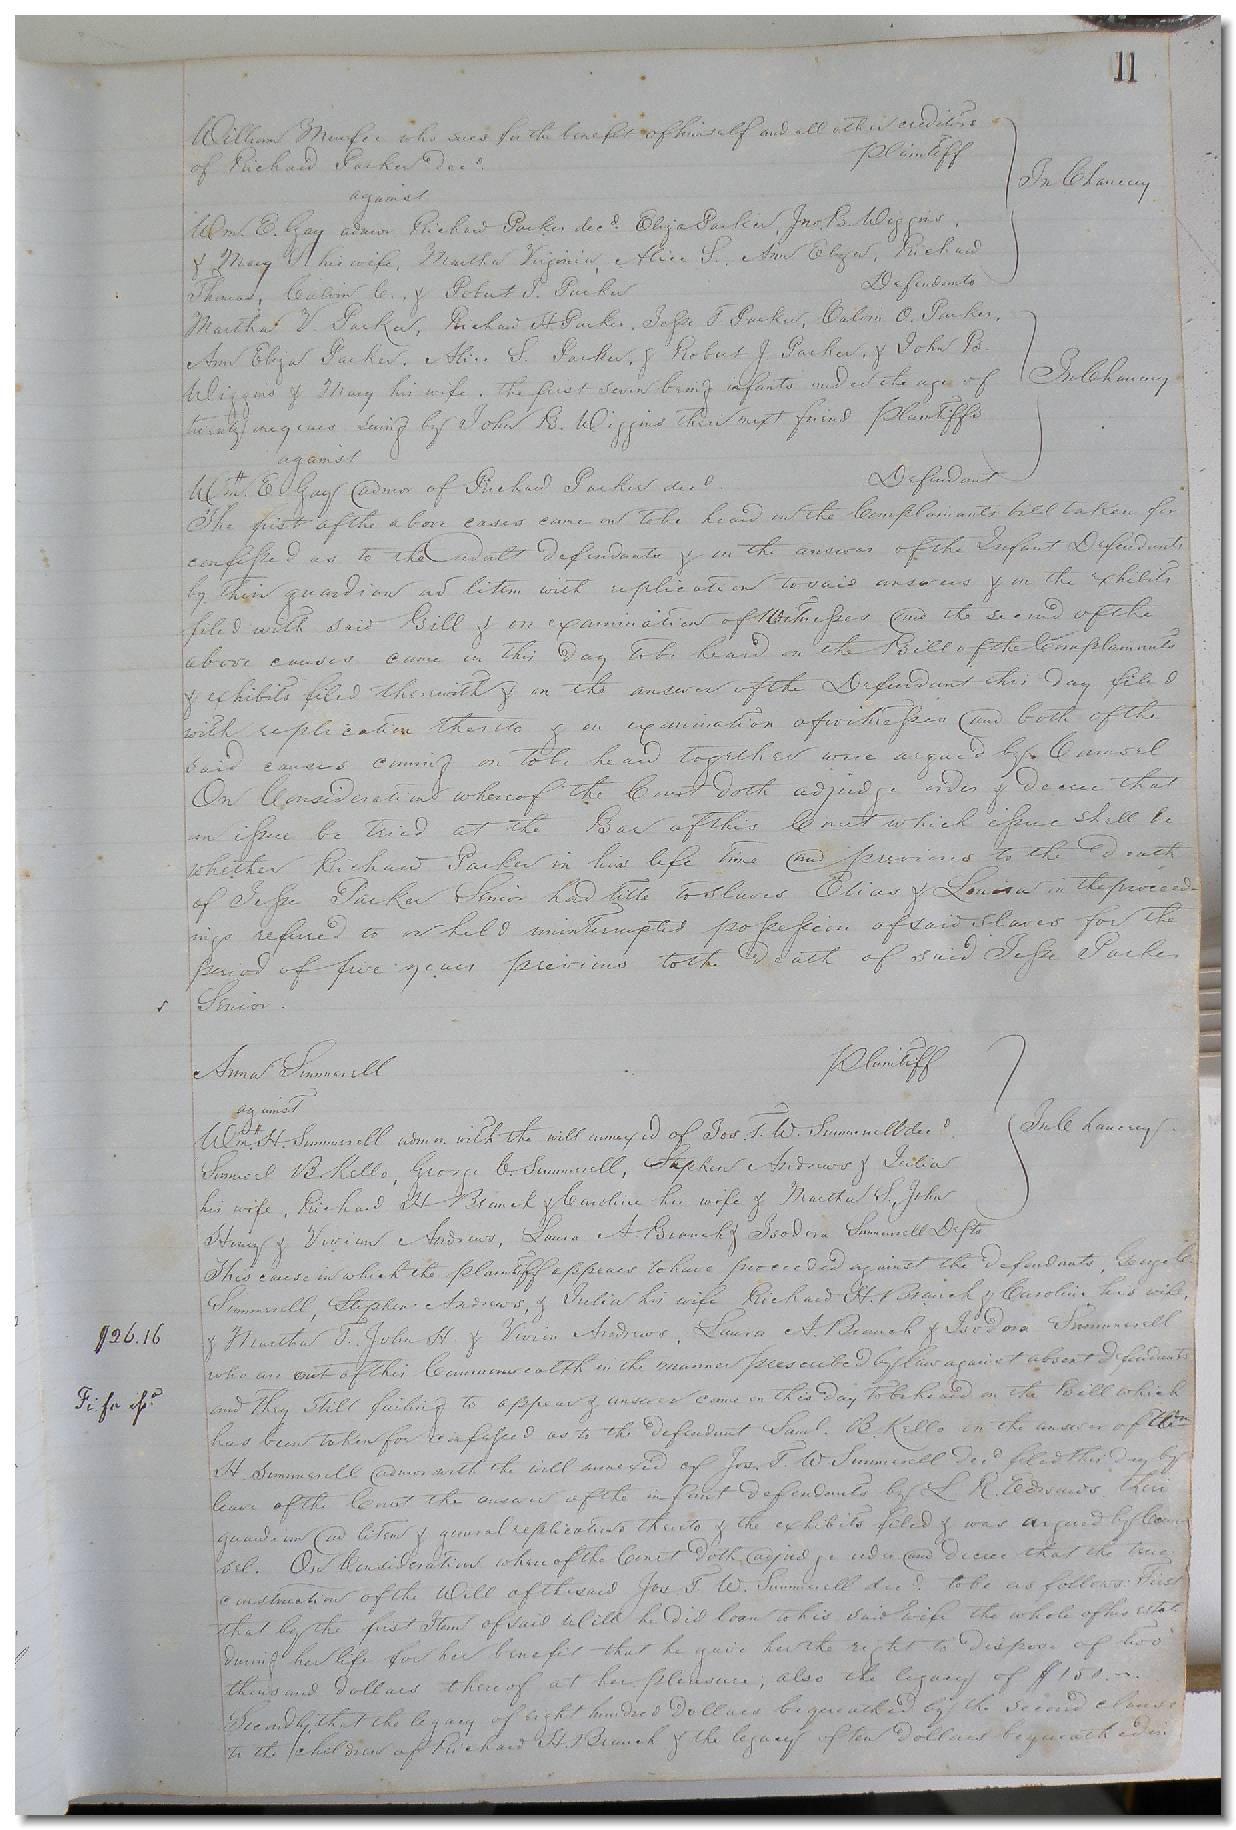 11
William Menfee who sues for the benefit of himself and all other creditors
of Richard Parker decd. Plaintiff
against In Chancery
Wm. E. Gay admor Richard Parker decd. Eliza Parker, Jno. B. Wiggins,
& Mary his wife, Martha Virginia, Alice S., Ann Eliza, Richard
Thomas, Calvin C., & Robert J. Parker Defendants
Martha V. Parker, Richard H Parker, Jesse T Parker, Calvin O. Parker,
Ann Eliza Parker, Alice S. Parker, & Robert J. Parker, & John B.
Wiggins & Mary his wife, the first seven being infants under the age of In Chancery
twenty one years suing by John B. Wiggins their next friend Plaintiffs
against
Wm. E. Gay admor of Richard Parker decd. Defendant
The first of the above cases came on to be heard on the Complainants bill taken for
confessed as to the adult defendants & on the answer of the Infant Defendants
by their guardian ad litem with replication to said answers & on the exhibits
filed with said Bill & on examination of Witnesses and the second of the
above causes came on this day to be heard on the Bill of the Complainants
& exhibits filed therewith & on the answer of the Defendant this day filed
with replication thereto & on examination of witnesses and both of the
said causes coming on to be heard together were argued by Counsel
On Consideration whereof the Court doth adjudge order & decree that
an issue be tried at the Bar of this Court which issue shall be
whether Richard Parker in his life time and previous to the death
of Jesse Parker Senior had title to slaves Elias & Louisa in the proceed-
ings referred to or held uninterrupted possession of said slaves for the
period of five years previous to the death of said Jesse Parker
Senior.
Anna Summerell Plaintiff
against
Wm. H. Summerell admor with the will annexed of Jos. T. W. Summerell decd. In Chancery
Samuel B. Kello, George C. Summerell, Stephen Andrews & Julia
his wife, Richard H Branch & Caroline his wife & Martha S, John
Henry & Vivian Andrews, Laura A Branch & Isodora Summerell Defts
This cause in which the plaintiff appears to have proceeded against the defendants, George C.
Summerell, Stephen Andrews, & Julia his wife Richard H. Branch & Caroline his wife,
$26.16 & Martha T. John H. & Vivian Andrews, Laura A Branch & Isodora Summerell
who are out of this Commonwealth in the manner prescribed by law against absent defendants
Fi. fa isd. and they still failing to appear & answer came on this day to be heard on the Bill which
has been taken for confessed as to the defendant Saml. B. Kello on the answer of Wm
H. Summerell admor with the will annexed of Jos. T. W Summerell decd filed this day by
leave of the Court the answer of the infant defendants by L R. Edwards their
guardian ad litem & general replications thereto & the exhibits filed & was argued by Coun
sel. On Consideration whereof the Court doth adjudge order and decree that the true
construction of the Will of the said Jos T. W. Summerell decd. to be as follows: First
that by the first Item of said Will he did loan to his said wife the whole of his estate
during her life for her benefit that he gave her the right to dispose of two
thousand dollars thereof at her pleasure; also the legacy of $150.
Secondly that the legacy of eight hundred dollars bequeathed by the second clause
to the children of Richard H. Branch & the legacy of ten dollars bequeathed in